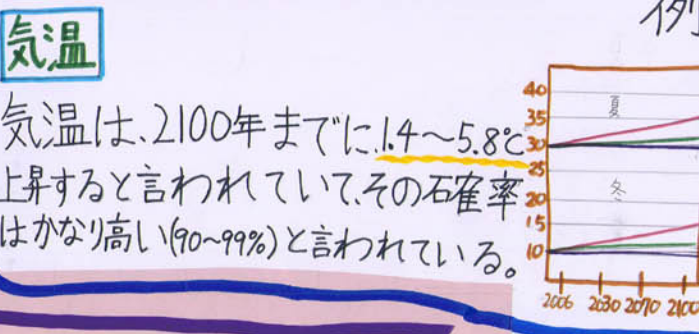 気温
気温は、2100年までに、1.4〜5.8℃
上昇すると言われていて、その確率
はかなり高い(90~99%)と言われている。
例
40
35
30
25
20
15
10
夏
冬
2006 2030 2070 2100